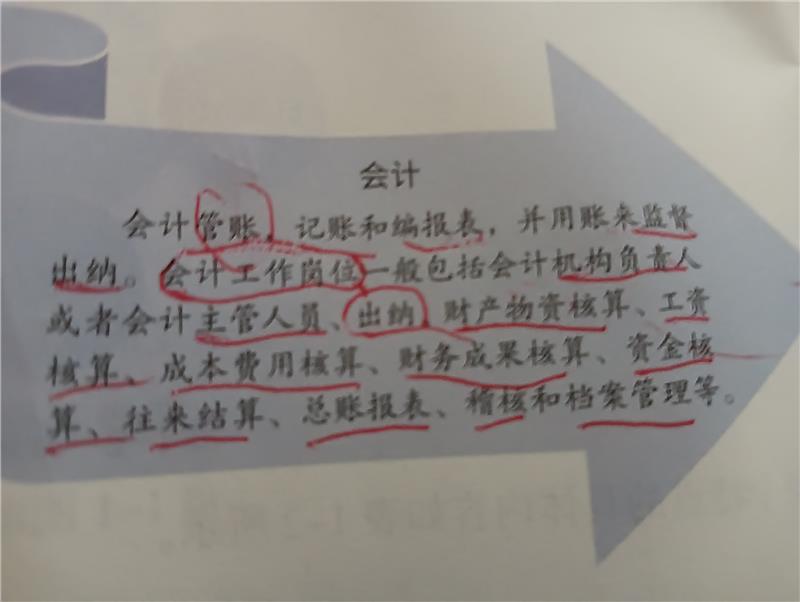 会计
会计管账，记账和编报表，并用账来监督
出纳。会计工作岗位一般包括会计机构负责人
或者会计主管人员、出纳、财产物资核算、工资
核算、成本费用核算、财务成果核算、资金核
算、往来结算、总账报表、稽核和档案管理等。